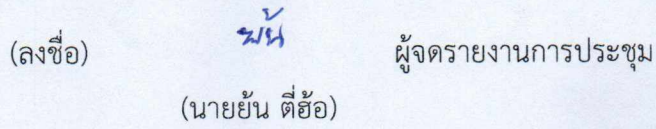 (ลงชื่อ) ย้น ผู้จดรายงานการประชุม
(นายย้น ตี่ฮ้อ)